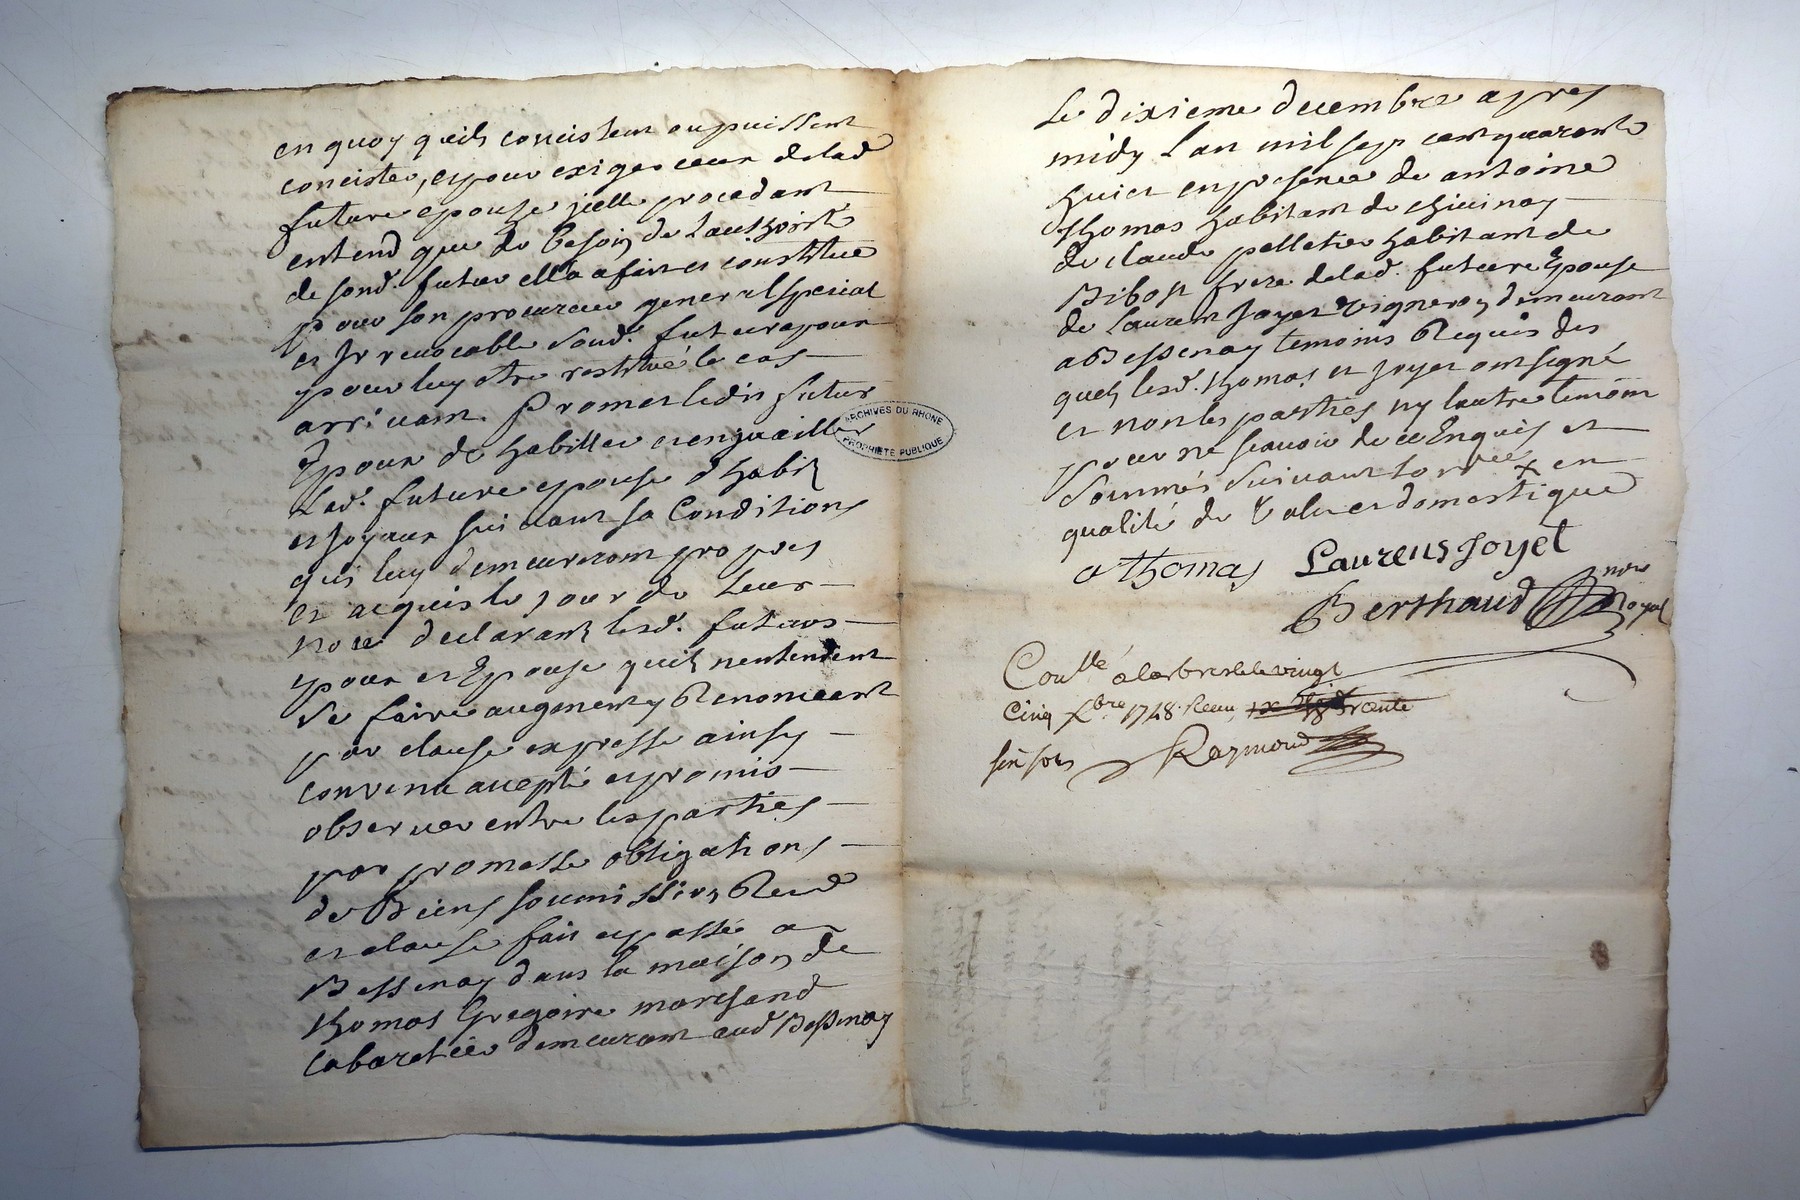 en quoy quils concistent ou puissent
concister, et pour exiger ceux delad
future epouse icelle procedant
entend que de besoin de Lauthorité
de sond. futur ella a fait et constitué
pour son procureur general special
et Irrevocable sond. futur epoux
pour luy etre restitué le cas
arrivant. Promet ledit futur
Epoux de habiller et enjoailler
Lad. future epouse d'habit
et Joyaux suivant sa Condition
qui luy demeureront propres
et acquis le jour de leur
noce declarant lesd. futurs
epoux et Epouse quils nentendent
se faire augment y Renonceant
par clause expresse ainsy
convenu accepté et promis
observer entre les parties
par promesse obligations
de Biens soumission Rend
et clause fait et passé a
Bessenay dans la maison de
thomas Gregoire marchand
Cabaretier demeurant aud Bessenay
Le dixieme decembre apres
midy Lan mil sept cent quarante
huict en presence de antoine
thomas habitant de chivinay
de claude pelletier habitant de
Bibost frere delad. future Epouse
de Laurent Joyet Vigneron demeurant
a Bessenay temoins Requis des
quels lesd. thomas et Joyet ont signé
et non les parties ny lautre temoin
pour ne scavoir de ce Enquis et
sommés suivant lordce x en
qualité de Valet et domestique
a thomas Laurens Joyet
Berthaud nore Royal
Conlle a larbresle le vingt
Cinq xbre 1748. Receu trente
six sols Raymond
ARCHIVES DU RHONE
PROPRIÉTÉ PUBLIQUE